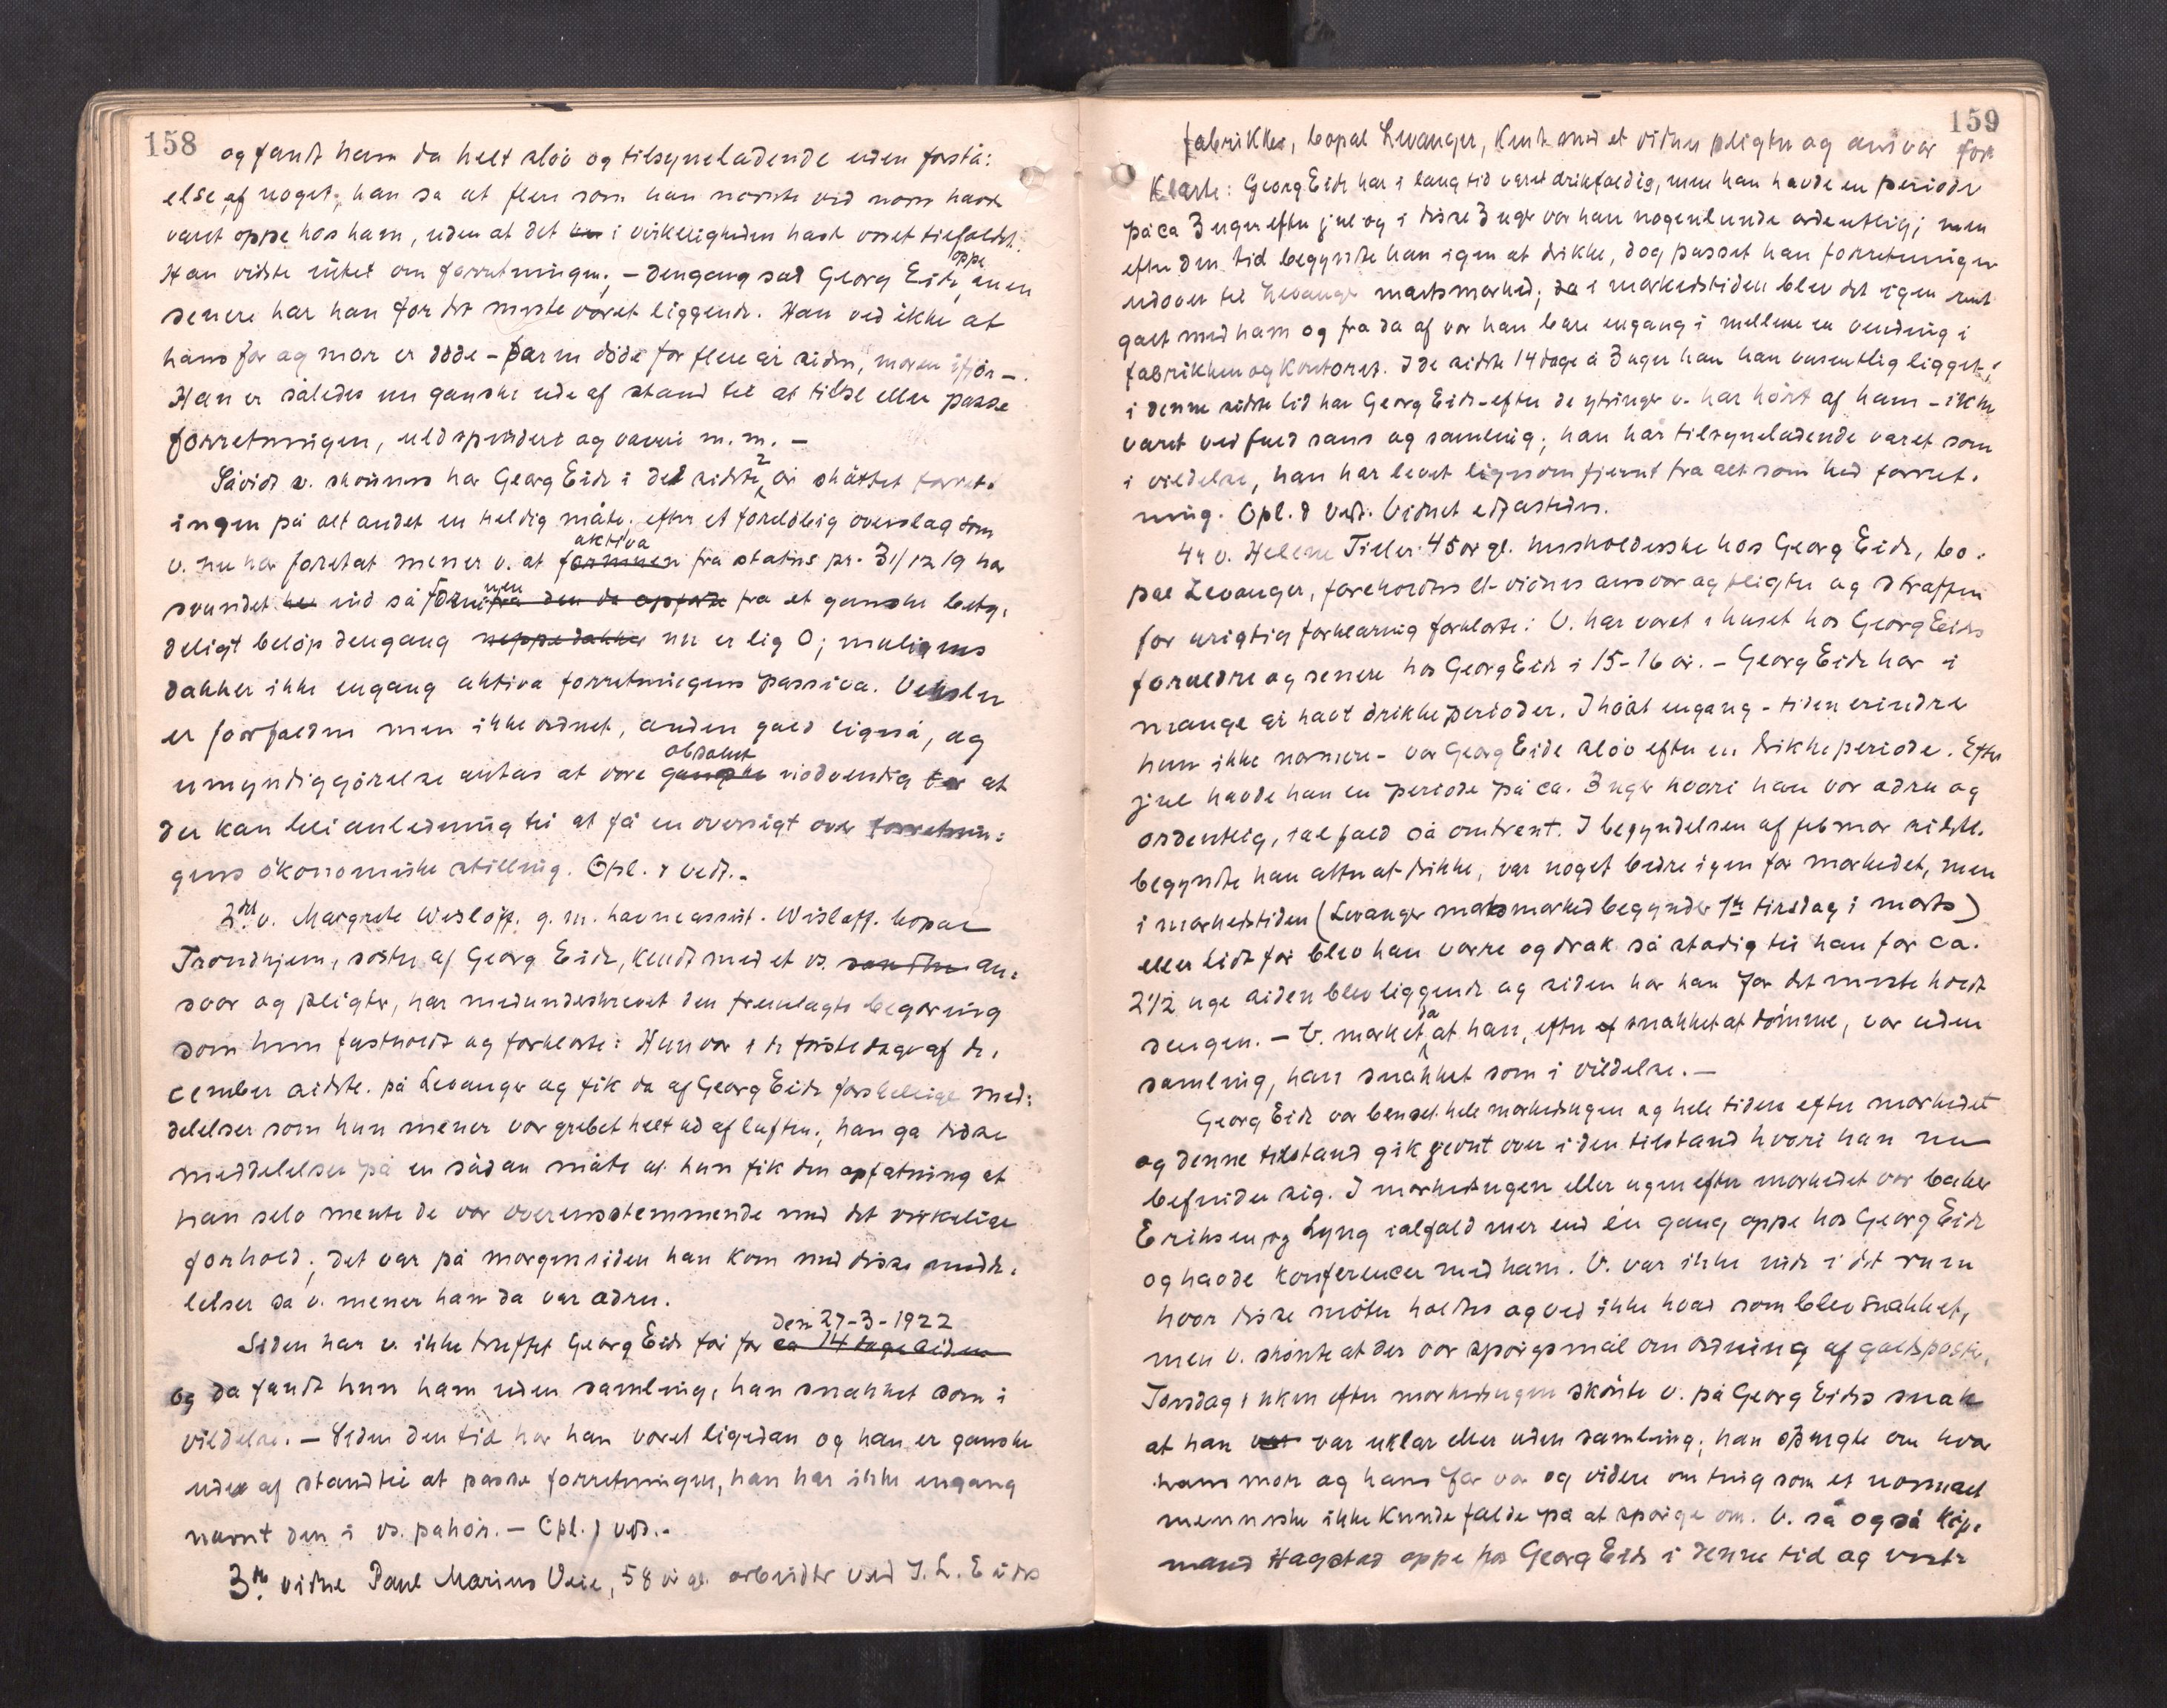 158
og fandt ham da helt sløv og tilsyneladende uden forstå-
else af noget; han sa at flere som han nævnte ved navn havde
været oppe hos ham, uden at det i virkeligheden hadde været tilfældet.
Han vidste intet om forretningen; - dengang sad Georg Eide oppe, men
senere har han for det meste været liggende. Han ved ikke at
hans far og mor er døde - faren døde for flere år siden, moren ifjor -.
Han er således nu ganske ude af stand til at tilse eller passe
forretningen, uldspinderi og væveri m.m. -
Såvidt v. skønner har Georg Eide i de sidste 2 år skøttet forret-
ingen på alt andet en heldig måte; efter et foreløbig overslag som
v. nu har foretat mener v. at aktiva fra status pr. 31/12 19 har
svundet ind så formuen fra et ganske bety-
deligt beløp dengang nu er lig 0; muligens
dækker ikke engang aktiva forretningens passiva. Veksler
er forfaldne men ikke ordnet, anden gæld ligeså, og
umyndiggjørelse antas at være absolut nødvendig for at
der kan bli anledning til at få en oversigt over forretnin-
gens økonomiske stilling. Opl. & vedt. -
2det v. Margrete Wisløff, g. m. havneassist. Wisløff, bopæl
Trondhjem, søster af Georg Eide, kendt med et vs. an-
svar og pligter, har medunderskrevet den fremlagte begæring
som hun fastholdt og forklarte: Hun var i de første dage af de-
cember sidstl. på Levanger og fik da af Georg Eide forskellige med-
delelser som hun mener var grebet helt ud af luften; han ga disse
meddelelser på en sådan måte at hun fik den opfatning at
han selv mente de var overensstemmende med det virkelige
forhold; det var på morgensiden han kom med disse medde-
lelser så v. mener han da var ædru.
Siden har v. ikke truffet Georg Eide før den 27-3-1922
og da fandt hun ham uden samling, han snakket som i
vildelse. - Siden den tid har han været ligedan og han er ganske
ude af stand til at passe forretningen, han har ikke engang
nævnt den i vs. påhør. - Opl. & vedt. -
3de vidne Paul Marius Veie, 58 år gl. arbeider ved I. L. Eides
159
fabrikker, bopæl Levanger, kendt med et vidnes pligter og ansvar for-
klarte: Georg Eide har i lang tid været drikfældig, men han havde en periode
på ca 3 uger efter jul og i disse 3 uger var han nogenlunde ordentlig; men
efter den tid begyndte han igen at drikke, dog passet han forretningen
udover til Levanger martsmarked; i markedstiden blev det igen rent
galt med ham og fra da af var han bare engang i mellem en vending i
fabrikken og kontoret. I de sidste 14 dage à 3 uger har han væsentlig ligget;
i denne sidste tid har Georg Eide - efter de ytringer v. har hørt af ham - ikke
været ved fuld sans og samling; han har tilsyneladende været som
i vildelse, han har levet ligesom fjernt fra alt som hed forret-
ning. Opl. & vedt. Vidnet edfæstedes.
4de v. Helene Tiller 45 år gl. husholderske hos Georg Eide, bo-
pæl Levanger, foreholdtes et vidnes ansvar og pligter og straffen
for urigtig forklaring forklarte: V. har været i huset hos Georg Eides
forældre og senere hos Georg Eide i 15-16 år. - Georg Eide har i
mange år havt drikkeperioder. I høst engang - tiden erindrer
hun ikke nærmere - var Georg Eide sløv efter en drikkeperiode. Efter
jul havde han en periode på ca. 3 uger hvori han var ædru og
ordentlig, ialfald så omtrent. I begyndelsen af februar sidstl.
begyndte han atter at drikke, var noget bedre igen før markedet, men
i markedstiden (Levanger martsmarked begynder 1ste tirsdag i marts)
eller lidt før blev han værre og drak så stadig til han for ca.
2 1/2 uge siden blev liggende og siden har han for det meste holdt
sengen. - V. mærket da at han, efter snakket at dømme, var uden
samling, han snakket som i vildelse. -
Georg Eide var beruset hele markedsugen og hele tiden efter markedet
og denne tilstand gik jevnt over i den tilstand hvori han nu
befinder sig. I markedsugen eller ugen efter markedet var baker
Eriksen og Lyng ialfald mer end én gang oppe hos Georg Eide
og havde konferencer med ham. V. var ikke inde i det rum
hvor disse møter holdtes og ved ikke hvad som blev snakket,
men v. skønte at der var spørgsmål om ordning af gældsposter.
Torsdag i uken efter markedsugen skønte v. på Georg Eides snak
at han var uklar eller uden samling; han spurgte om hvor
hans mor og hans far var og videre om ting som et normalt
menneske ikke kunde falde på at spørge om. V. så også kjøp-
mand Hagstad oppe hos Georg Eide i denne tid og